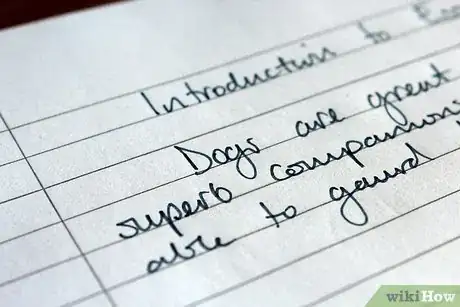 Introduction to
Dogs are great
superb companions
able to gaurd
wikiHow